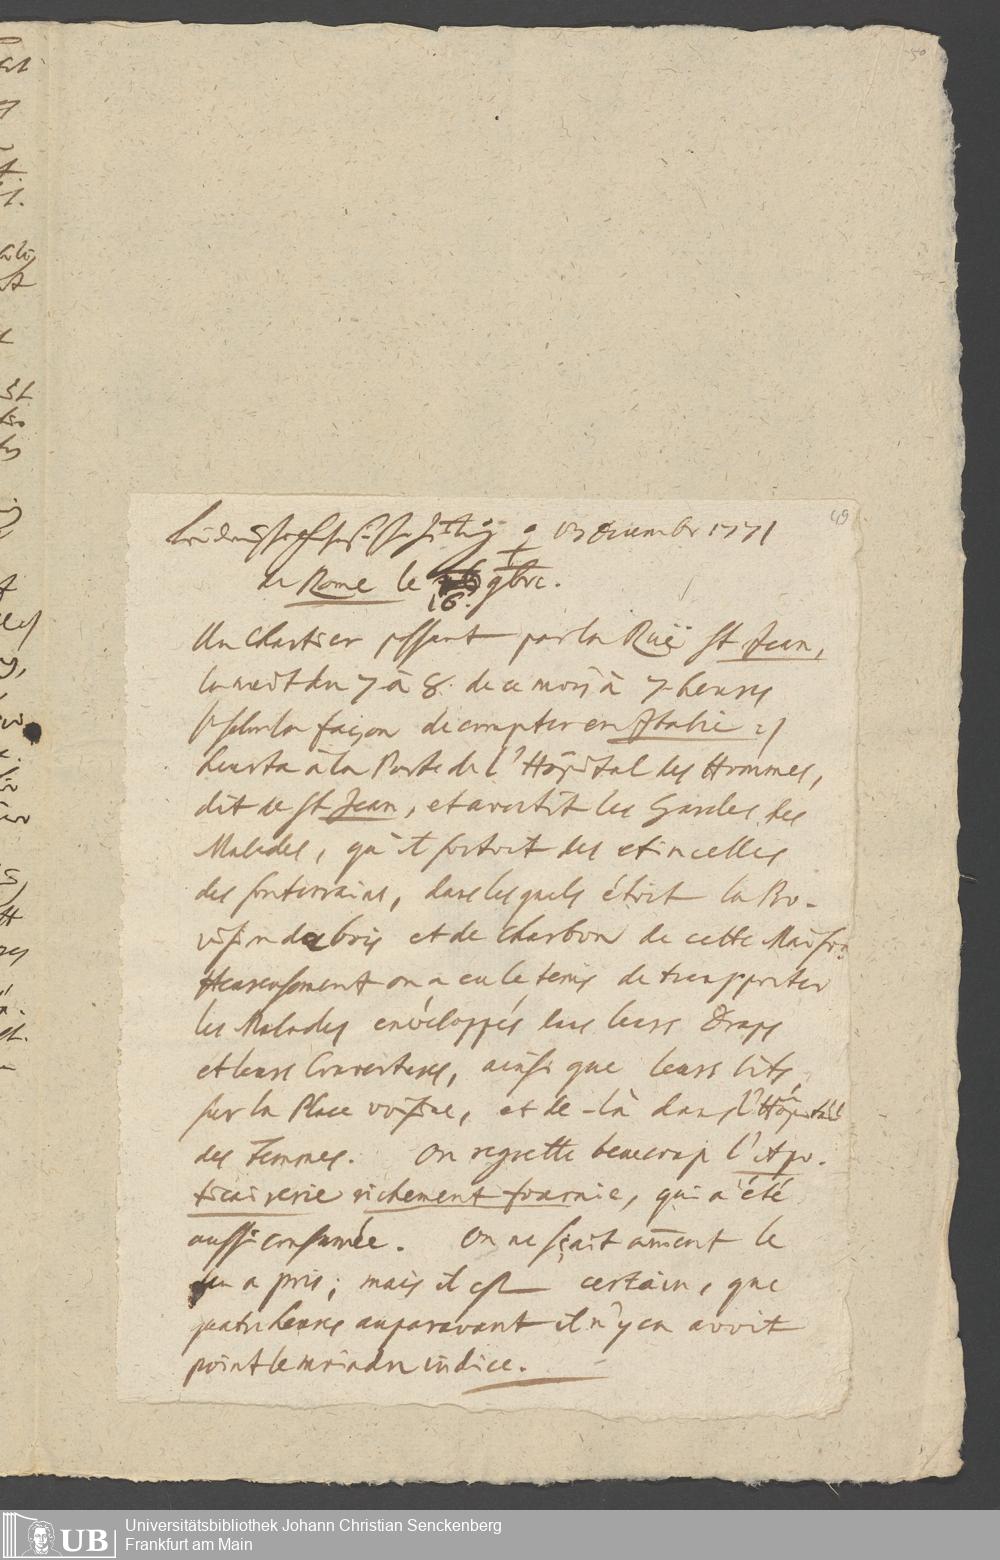 49
13 December 1771
de Rome le 16. 9bre.
Un Chartier passant par la Ruë St Jean,
la nuit du 7 à 8. de ce mois à 7 heures
selon la façon de compter en Italie
heurta à la Porte de l'Hôpital des Hommes,
dit de St Jean, et avertit les Gardes des
Malades, qu'il sortoit des etincelles
des souterrains, dans lesquels étoit la Pro-
vision de bois et de Charbon de cette Maison
Heureusement on a eu le tems de transporter
les Malades envéloppés dans leurs Draps
et leurs Couvertures, ainsi que leurs lits,
sur la Place voisine, et de-là dans l'Hôpital
des Femmes. On regrette beaucoup l'Apo-
ticairerie richement fournie, qui a été
aussi consumée. On ne sçait coment le
feu a pris; mais il est certain, que
quatre heures auparavant il n'y en avoit
point le moindre indice.
UB
Universitätsbibliothek Johann Christian Senckenberg
Frankfurt am Main